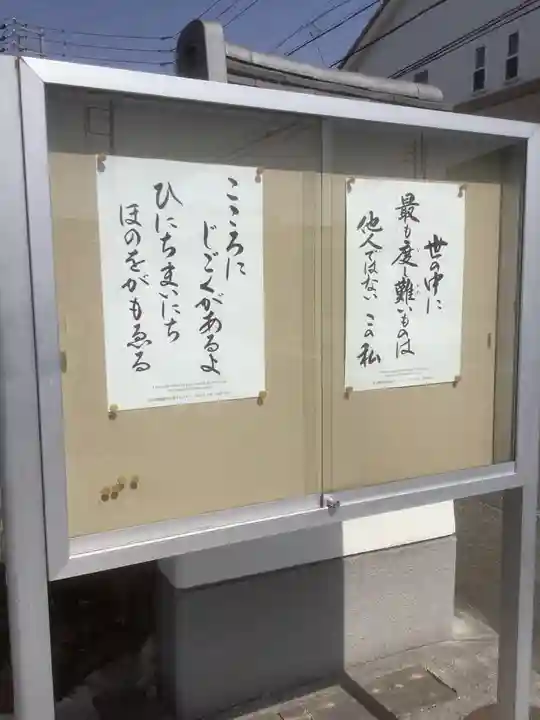 世の中に
最も度し難いものは
他人ではない この私
こころに
じごくがあるよ
ひにちまいにち
ほのをがもゑる